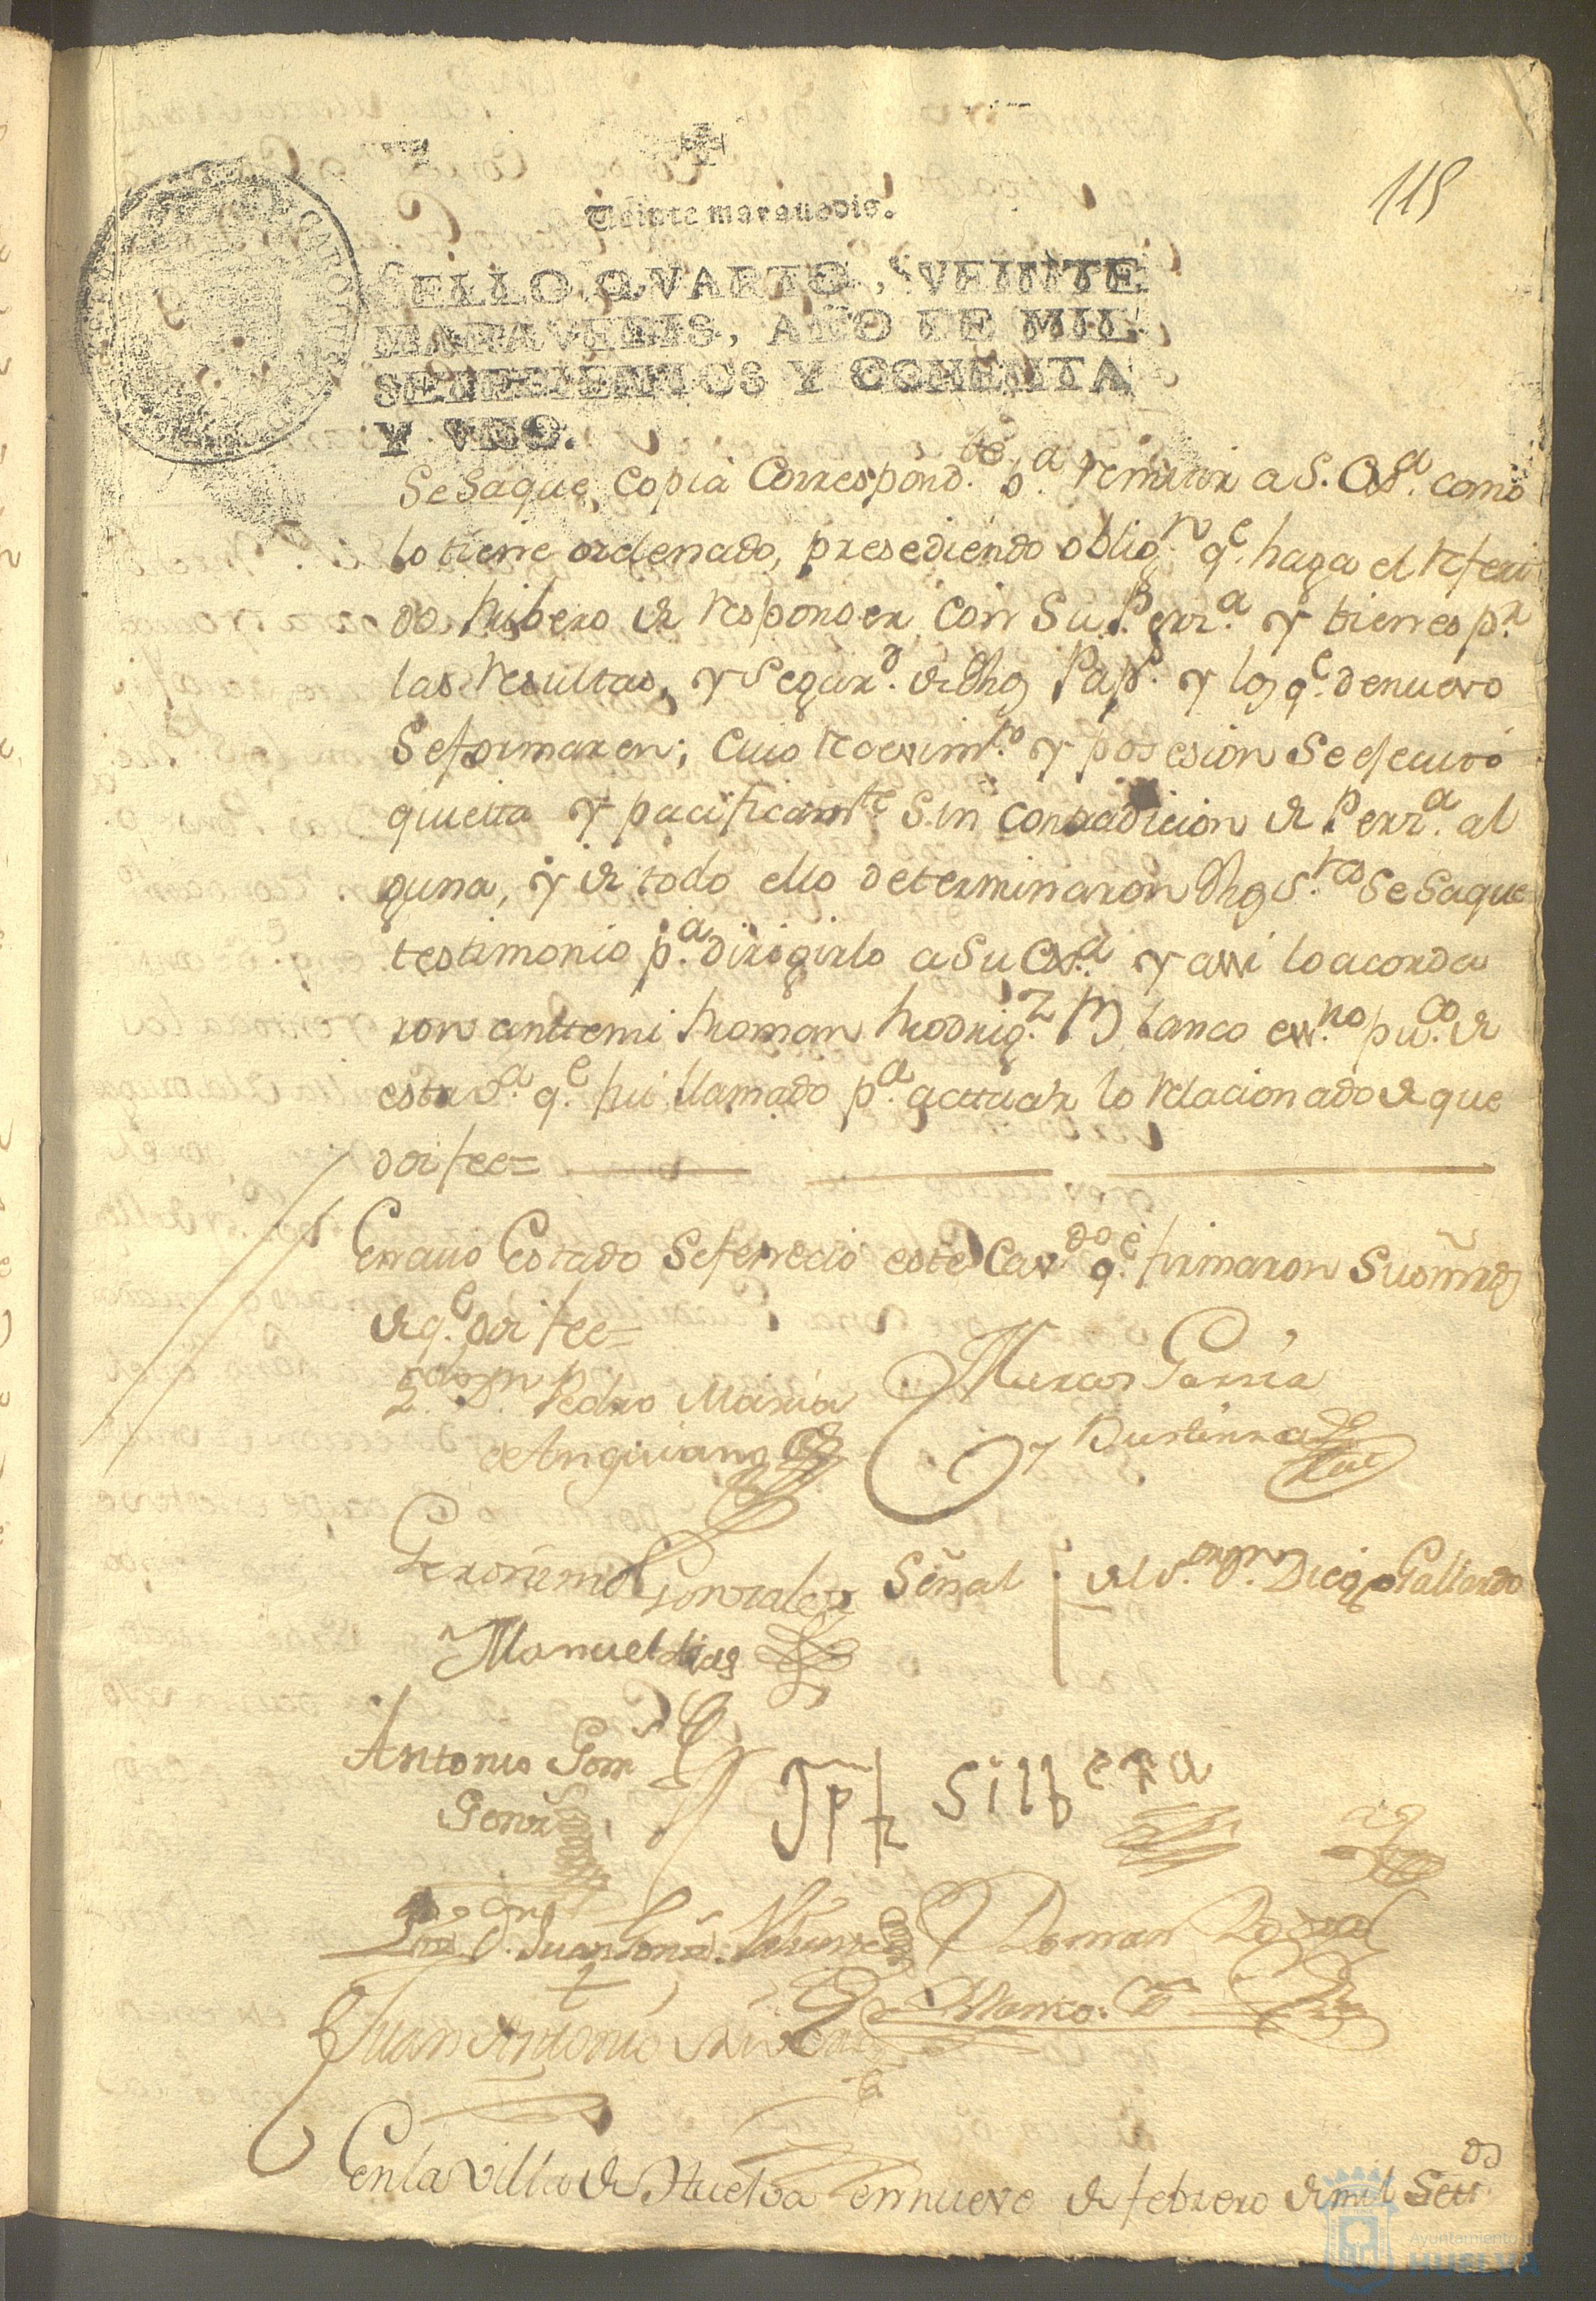 115
Veinte marauedis.
SELLO QVARTO, VEINTE
MARAVEDIS, AÑO DE MIL
SETECIENTOS Y OCHENTA
Y VNO.
Se Saque, copia Correspond.te p.a remitir a S. Ex.a como
lo tiene ordenado, presediendo oblig.n q.e haga el referi
do Ribero de responder con Su Perz.a y bienes p.r
las resultas, y Segur.d de dhos Pap.s y los q.e de nuevo
Se formaren; cuio resevim.to y posesion Se efecuto
quieta y pacificam.te Sin contradicion de Perz.a al
guna, y de todo ello determinaron dhos S.res Se Saque
testimonio p.a dirigirlo a Su Ex.a y assi lo acorda
ron anttemi Roman Rodrig.z Blanco ess.no pu.co de
esta V.a q.e fui llamado p.a acttuar lo relacionado de que
doi fee=
En cuio Estado Se fenecio este Cav.do q.e firmaron Sus mrds
de q.e doi fee=
Pedro Maria
de Anguiano
Marcos Garcia
y Bustinza
Geronimo Gonzales
Señal del S.or D.n Diego Gallardo
Manuel dias
Antonio Gom
Gonz
Silbera
D.n Juan
Roman Rodrig
Blanco
Juan Antonio
En la Villa de Huelva en nueve de febrero de mil Set.os
Ayuntamiento
HUELVA